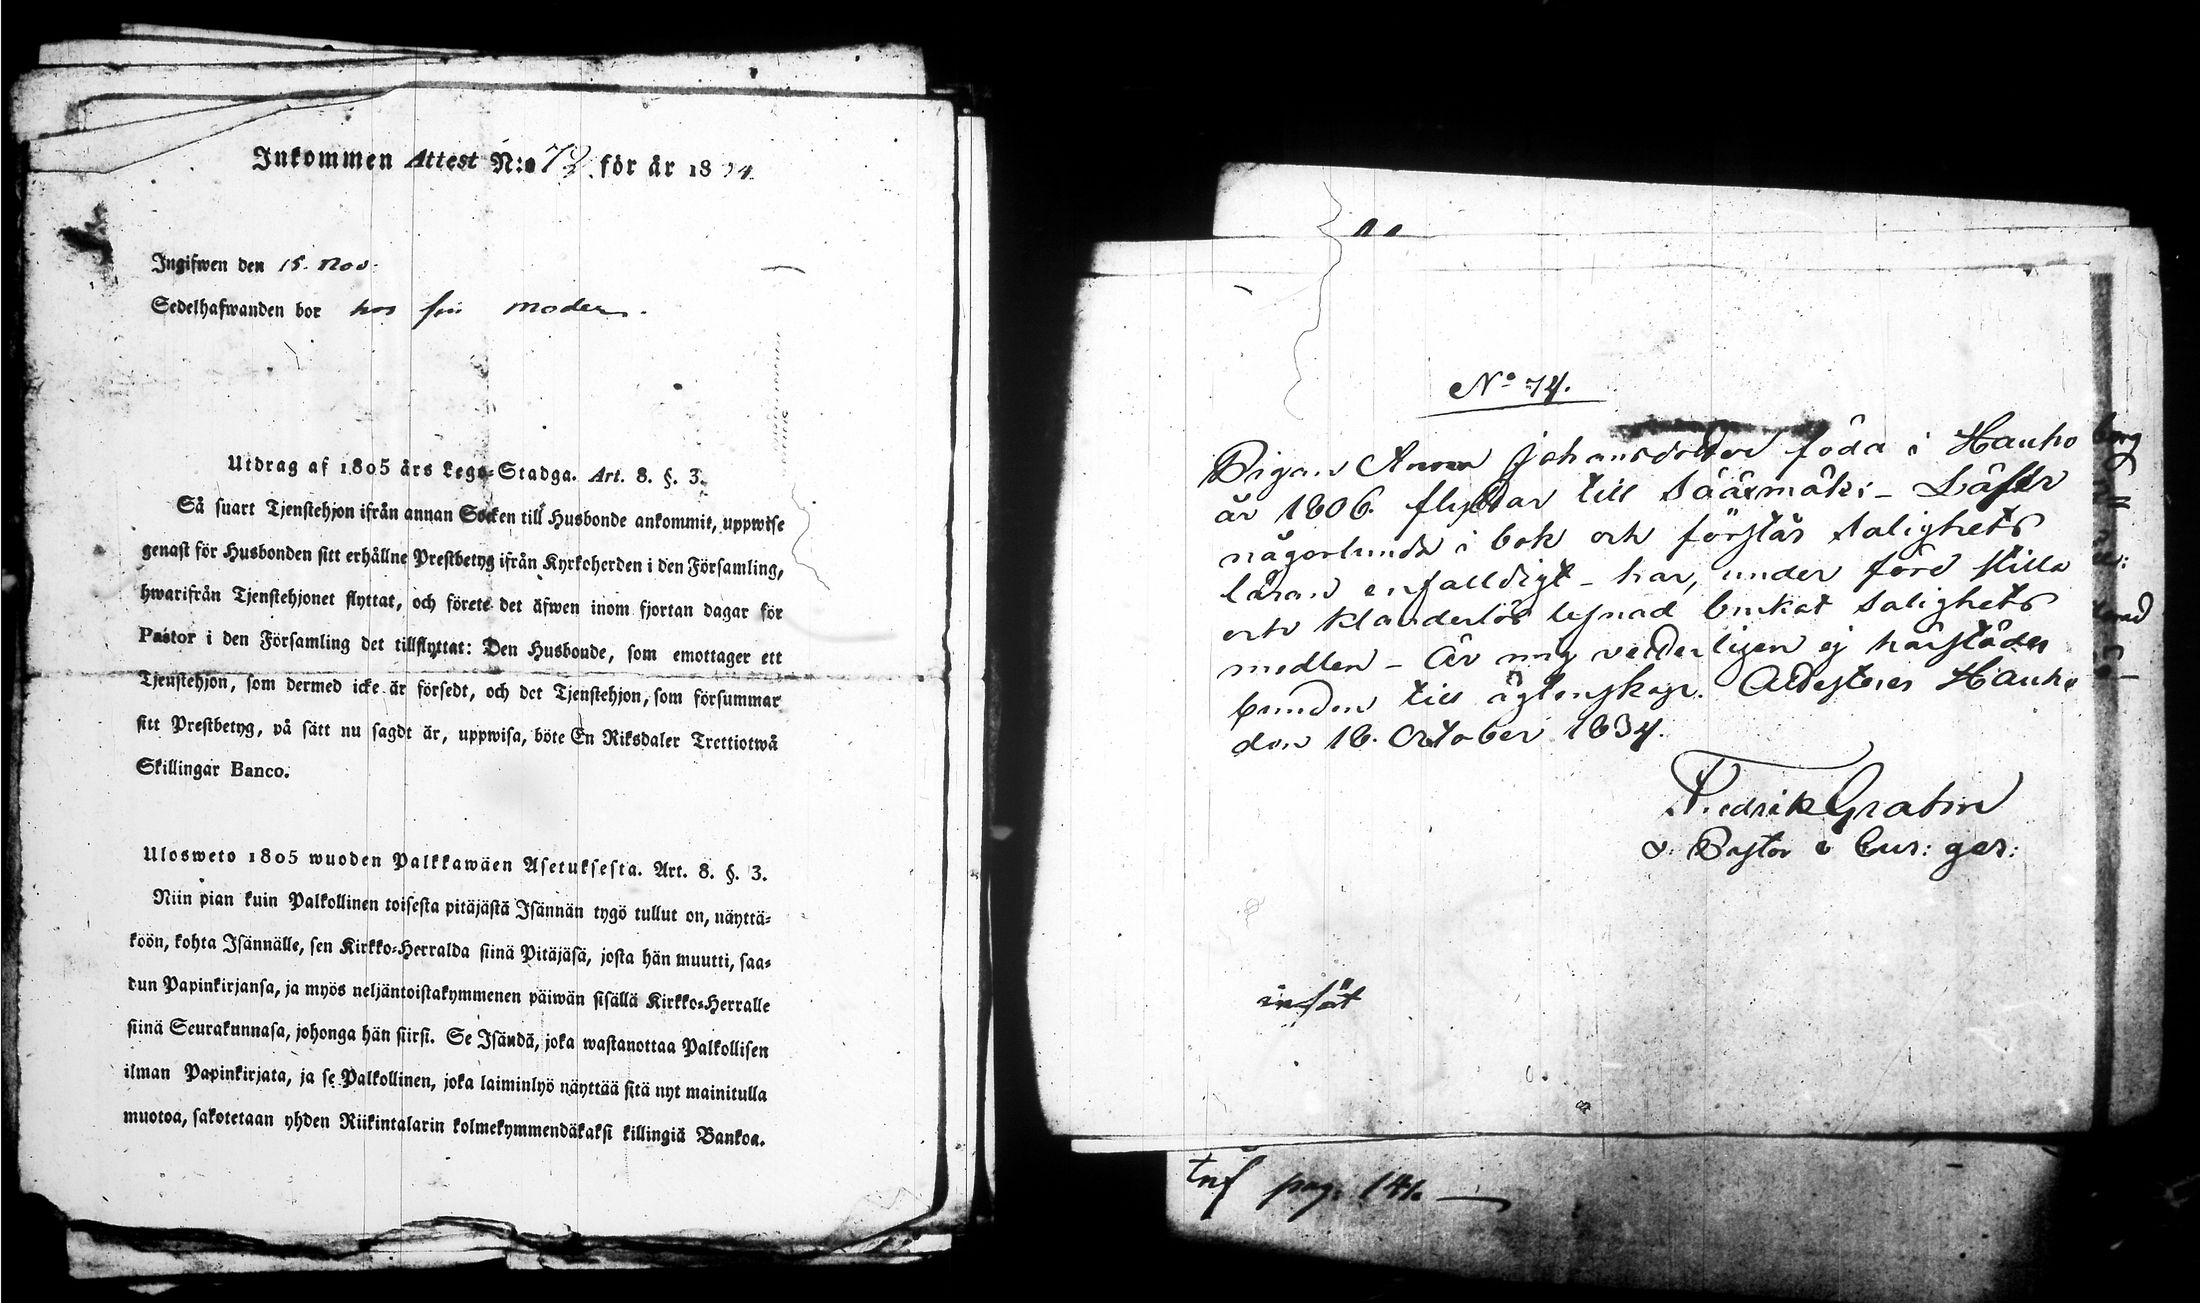 Inkommen Attest N:o 73 för år 1834
Ingifwen den 15. Nov.
Sedelhafwanden bor hos sin moder.
Utdrag af 1805 års Lego-Stadga. Art. 8. §. 3.
Så snart Tjenstehjon ifrån annan Socken till Husbonde ankommit, uppwise
genast för Husbonden sitt erhållne Prestbetyg ifrån Kyrkoherden i den Församling,
hwarifrån Tjenstehjonet flyttat, och förete det äfwen inom fjortan dagar för
Pastor i den Församling det tillflyttat: Den Husbonde, som emottager ett
Tjenstehjon, som dermed icke är försedt, och det Tjenstehjon, som försummar
sitt Prestbetyg, på sätt nu sagdt är, uppwisa, böte En Riksdaler Trettiotwå
Skillingar Banco.
Ulosweto 1805 wuoden Palkkawäen Asetuksesta. Art. 8. §. 3.
Niin pian kuin Palkollinen toisesta pitäjästä Isännän tygö tullut on, näyttä-
köön, kohta Isännälle, sen Kirkko-Herralda siinä Pitäjäsä, josta hän muutti, saa-
dun Papinkirjansa, ja myös neljäntoistakymmenen päiwän sisällä Kirkko-Herralle
siinä Seurakunnasa, johonga hän siirsi. Se Isändä, joka wastanottaa Palkollisen
ilman Papinkirjata, ja se Palkollinen, joka laiminlyö näyttää sitä nyt mainitulla
muotoa, sakotetaan yhden Riikintalarin kolmekymmendäkaksi killingiä Bankoa.
No 74.
Pigan Anna Johansdotter föda i Hauho
år 1806. flyttar till Sääxmäki - Läser
någorlunda i bok och förstår salighets
läran enfalldigt - har, under förd stilla
och klanderlös lefnad brukat salighets
medlen - Är mig vetterligen ej härstädes
bunden till ägtenskap. Attesteres Hauho
den 18. October 1834.
Fredrik Grahn
v. Pastor
infört
pag. 141.